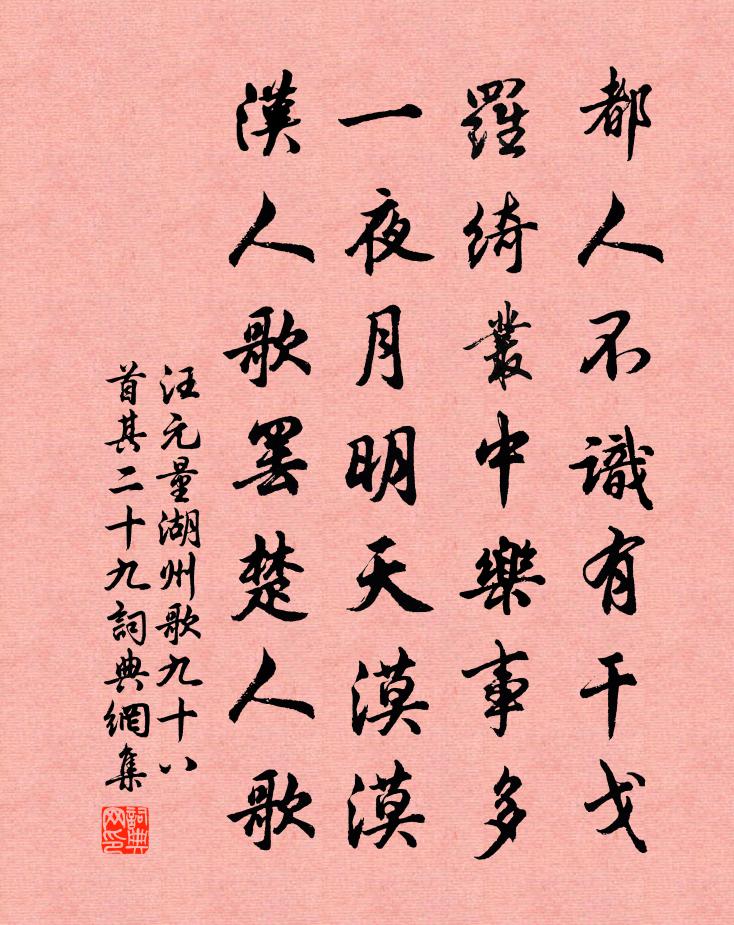 都人不識有干戈
羅綺叢中樂事多
一夜月明天漠漠
漢人歌罷楚人歌
汪元量湖州歌九十八
首其二十九詞典網集
詞典网印